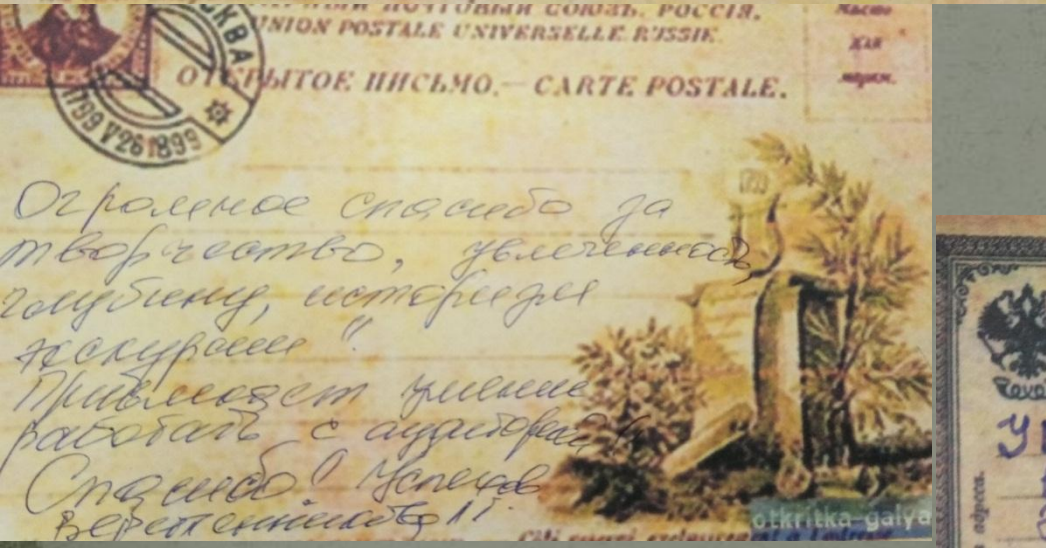 ПОЧТОВЫЙ СОЮЗЪ. РОССІЯ.
UNION POSTALE UNIVERSELLE. RUSSIE.
ОТКРЫТОЕ ПИСЬМО.— CARTE POSTALE.
Мѣсто
для
марки.
МОСКВА
1799 V26 1899
Огромное спасибо за
творчество, увлеченность,
глубину, историзм
экскурсии!
Привлекает умение
работать с аудиторией!
Спасибо! Успехов
Веретенникова
otkritka-galya
адреса.